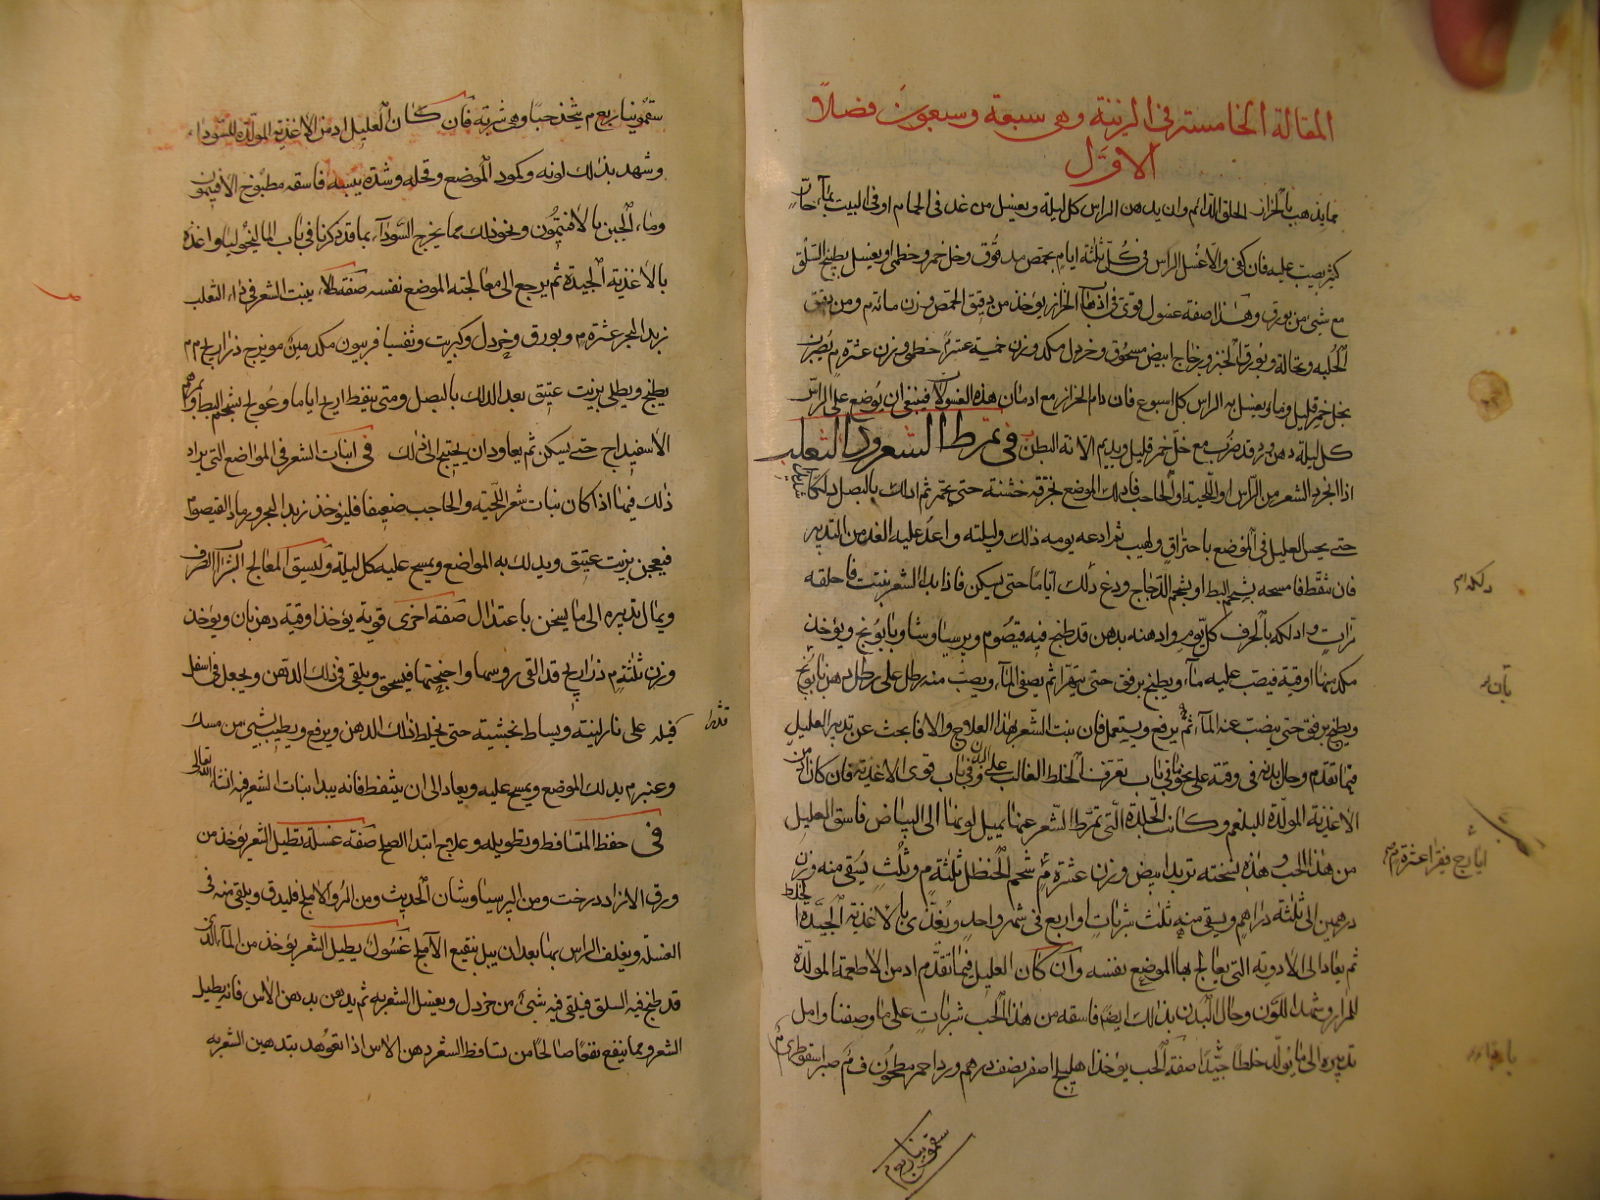 المقالة الخامسة في الزينة وهي سبعة وسبعون فصلاً
الاول
مما يذهب بالحزاز الحلق الدائم وان يدهن الراس كل ليلة ويغسل من غد في الحمام او في البيت بماء حار
كثير يصب عليه فان كفى والا غسل الراس في كل ثلثة ايام بحمص مدقوق وخل خمر وخطمي او يغسل بطبيخ السلق
مع شيء من بورق وهذا صفة غسول قوي في اذهاب الحزاز يؤخذ من دقيق الحمص وزن مائة م ومن دقيق
الحلبة ونخالة وبورق الخبز وزجاج ابيض مسحوق وخردل مكد وزن خمسة عشر م خطمي وزن عشرة م يضرب
بخل خمر قليل وماء ويغسل به الراس كل اسبوع فان دام الحزاز مع ادمان هذه الغسولات فينبغي ان يوضع على الراس
كل ليلة دهن ورد قد ضرب مع خل خمر قليل ويديم الانة البطن في تمرط الشعر وداء الثعلب
اذا انجرد الشعر من الراس او اللحية او الحاجب فادلك الموضع بخرقة خشنة حتى يحمر ثم ادلك بالبصل دلكا
حتى يحس العليل في الموضع باحتراق ولهيب ثم ادعه يومه ذلك وليلته واعد عليه الغد من التدبير
فان تنفط فامسحه بشحم البط او بشحم الدجاج ودع ذلك اياما حتى يسكن فاذا بدا الشعر ينبت فاحلقه
مرات وادلكه بالخرق كل يوم وادهنه بدهن قد طبخ فيه قيصوم وبرسياوشان وبابونج ويؤخذ
مكد منها اوقية فيصب عليه ماء ويطبخ برفق حتى يتهرا ثم يصفى الماء ويصب منه رطل على رطل دهن بابونج
ويطبخ برفق حتى ينضب عنه الماء ثم يرفع ويستعمل فان نبت الشعر بهذا العلاج والا فابحث عن تدبير العليل
فيما تقدم وحال بدنه في وقته على نحو ما في باب تعرف الخلط الغالب على البدن وفي باب قوى الاغذية فان كان من
الاغذية المولدة للبلغم وكانت الجلدة التي تمرط الشعر عنها يميل لونها الى البياض فاسق العليل
من هذا الحب وهذه نسخته تربد ابيض وزن عشرة م شحم الحنظل ثلثة م وثلث يسقى منه وزن
درهمين الى ثلثة دراهم ويسقى منه ثلث شربات او اربع في شهر واحد ويغذى بالاغذية الجيدة الخلط
ثم يعاد الى الادوية التي يعالج بها الموضع نفسه وان كان العليل فيما تقدم ادمن الاطعمة المولدة
للمرار وشهد اللون وحال البدن بذلك ايضا فاسقه من هذا الحب شربات على ما وصفنا وامل
تدبيره الى ما يولد خلطا جيدا صفة الحب يؤخذ اهليلج اصفر نصف درهم ورد احمر مطحون صبر اسقوطري
دلكه م
ايارج فيقرا عشرة م
سقمونيا ربع م
سقمونيا ربع م يتخذ حبا وهي شربة فان كان العليل ادمن الاغذية المولدة للسوداء
وشهد بذلك لونه وكمود الموضع وقحله وشدة يبسه فاسقه مطبوخ الافيتمون
وماء الجبن بالافتيمون ونحو ذلك مما يخرج السوداء بما قد ذكرنا في باب الماليخوليا واغذه
بالاغذية الجيدة ثم يرجع الى معالجته الموضع نفسه صفة طلاء ينبت الشعر في داء الثعلب
زبد البحر عشرة م وبورق وخردل وكبريت وثفسيا فربيون مكد مويزج ذراريح م م
يطبخ ويطلى بزيت عتيق بعد الدلك بالبصل ومتى ينفط اريح اياما وعولج بشحم البط او مرهم
الاسفيداج حتى يسكن ثم يعاود ان يحتيج الى ذلك في انبات الشعر في المواضع التي يراد
ذلك فيها اذا كان نبات شعر اللحية والحاجب ضعيفا فليؤخذ زبد البحر ورماد القيصوم
فيعجن بزيت عتيق ويدلك به المواضع ويمسح عليه كل ليلة وليسق المعالج
ويمال تدبيره الى ما يسخن باعتدال صفة اخرى قوية يؤخذ اوقية دهن بان ويؤخذ
وزن ثلثة م ذراريح قد القى روسها واجنحتها فيسحق ويلقى في ذلك الدهن ويجعل في اسفل
كيله على نار لينة ويساط بخشبة حتى يخلط ذلك الدهن ويرفع ويطيب بشيء من مسك
وعنبر م يدلك الموضع ويمسح عليه ويعاد الى ان يتنفط فانه يبدا بنات الشعر فيه انشاء الله تعالى
في حفظ المتساقط وتطويله وعلاج ابتدا الصلع صفة غسلة تطيل الشعر يؤخذ من
ورق الازاد درخت ومن البرسياوشان الحديث ومن المر والاملج فليدق ويلقى منه في
الغسلة ويغلف الراس بها بعد ان يبل بنقيع الآملج غسول يطيل الشعر يؤخذ من الماء الذي
قد طبخ فيه السلق فيلقى فيه شيء من خردل ويغسل الشعر به ثم يدهن بدهن الاس فانه يطيل
الشعر ومما ينفع نفعا صالحا من تساقط الشعر دهن الاس اذا تعوهد بتدهين الشعر به